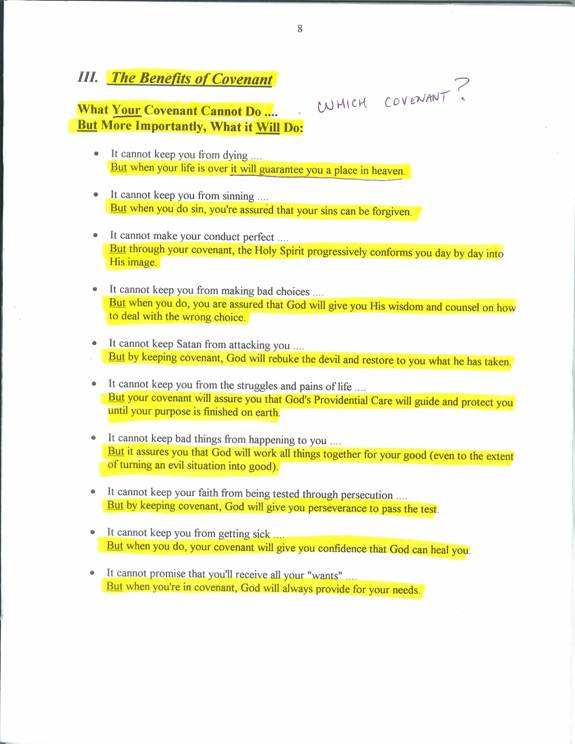 8
III. The Benefits of Covenant
WHICH COVENANT?
What Your Covenant Cannot Do ....
But More Importantly, What it Will Do:
• It cannot keep you from dying ....
But when your life is over it will guarantee you a place in heaven.
• It cannot keep you from sinning ....
But when you do sin, you're assured that your sins can be forgiven.
• It cannot make your conduct perfect ....
But through your covenant, the Holy Spirit progressively conforms you day by day into
His image.
• It cannot keep you from making bad choices ....
But when you do, you are assured that God will give you His wisdom and counsel on how
to deal with the wrong choice.
• It cannot keep Satan from attacking you ....
But by keeping covenant, God will rebuke the devil and restore to you what he has taken.
• It cannot keep you from the struggles and pains of life ....
But your covenant will assure you that God's Providential Care will guide and protect you
until your purpose is finished on earth.
• It cannot keep bad things from happening to you ....
But it assures you that God will work all things together for your good (even to the extent
of turning an evil situation into good).
• It cannot keep your faith from being tested through persecution ....
But by keeping covenant, God will give you perseverance to pass the test.
• It cannot keep you from getting sick ....
But when you do, your covenant will give you confidence that God can heal you.
• It cannot promise that you'll receive all your "wants" ....
But when you're in covenant, God will always provide for your needs.